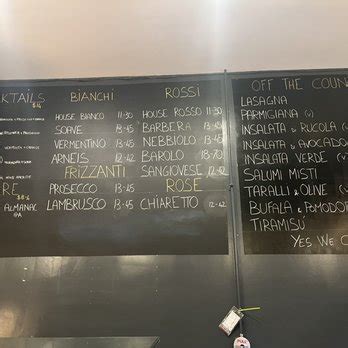 KTAILS
$14
RE
8.5
ALMANAC
IPA
BIANCHI
HOUSE BIANCO 11-30
SOAVE 13-45
VERMENTINO 13-45
ARNEIS 12-44
FRIZZANTI
PROSECCO 13-45
LAMBRUSCO 13-45
ROSSI
HOUSE ROSSO 11-30
BARBERA 13-45
NEBBIOLO 13-45
BAROLO 18-70
SANGIOVESE 12-42
ROSÉ
CHIARETTO 12-42
OFF THE COUN
LASAGNA
PARMIGIANA (V)
INSALATA & RUCOLA (V)
INSALATA & AVOCAD
INSALATA VERDE (V)
SALUMI MISTI
TARALLI & OLIVE (V)
BUFALA & POMODOR
TIRAMISÚ
YES WE C